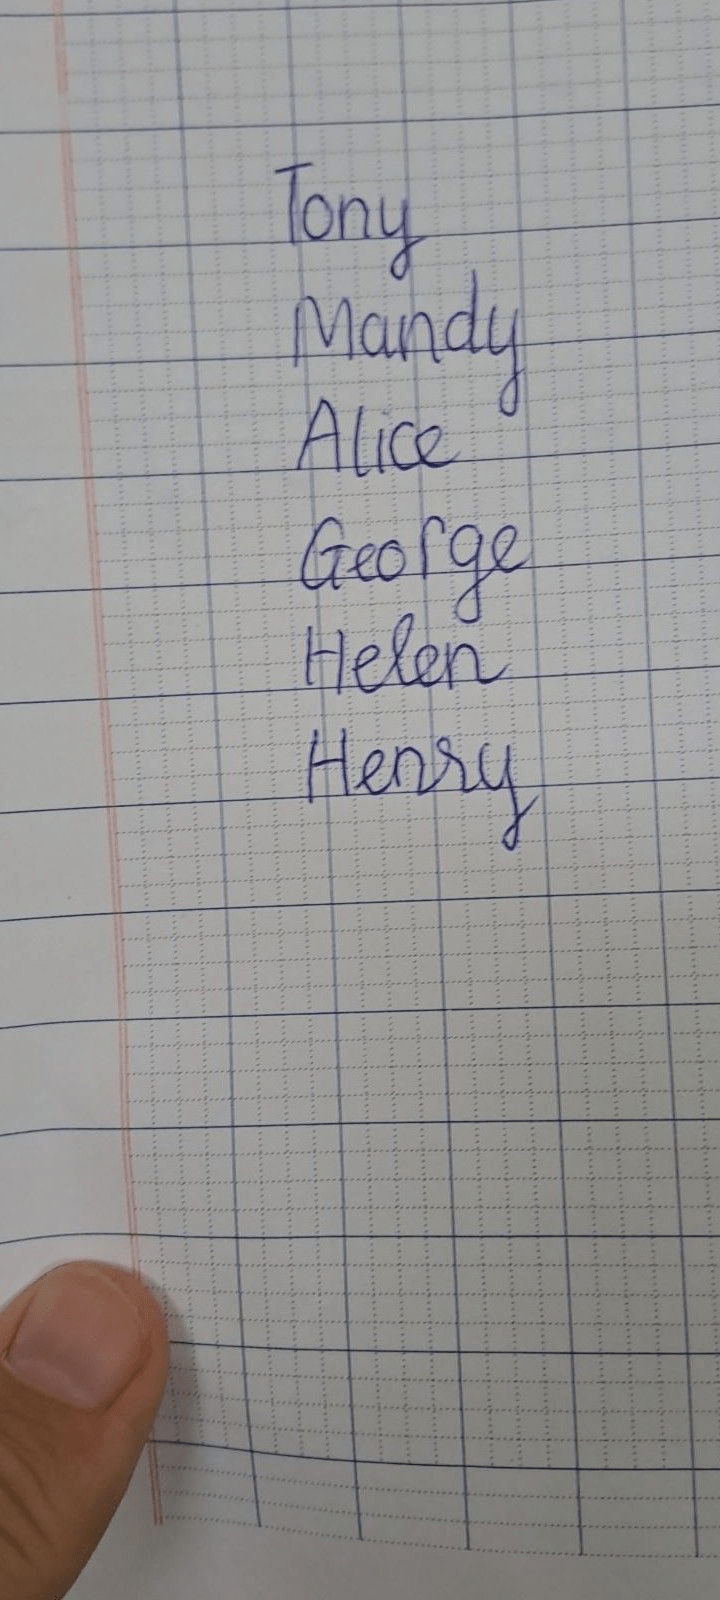 Tony
Mandy
Alice
George
Helen
Henry